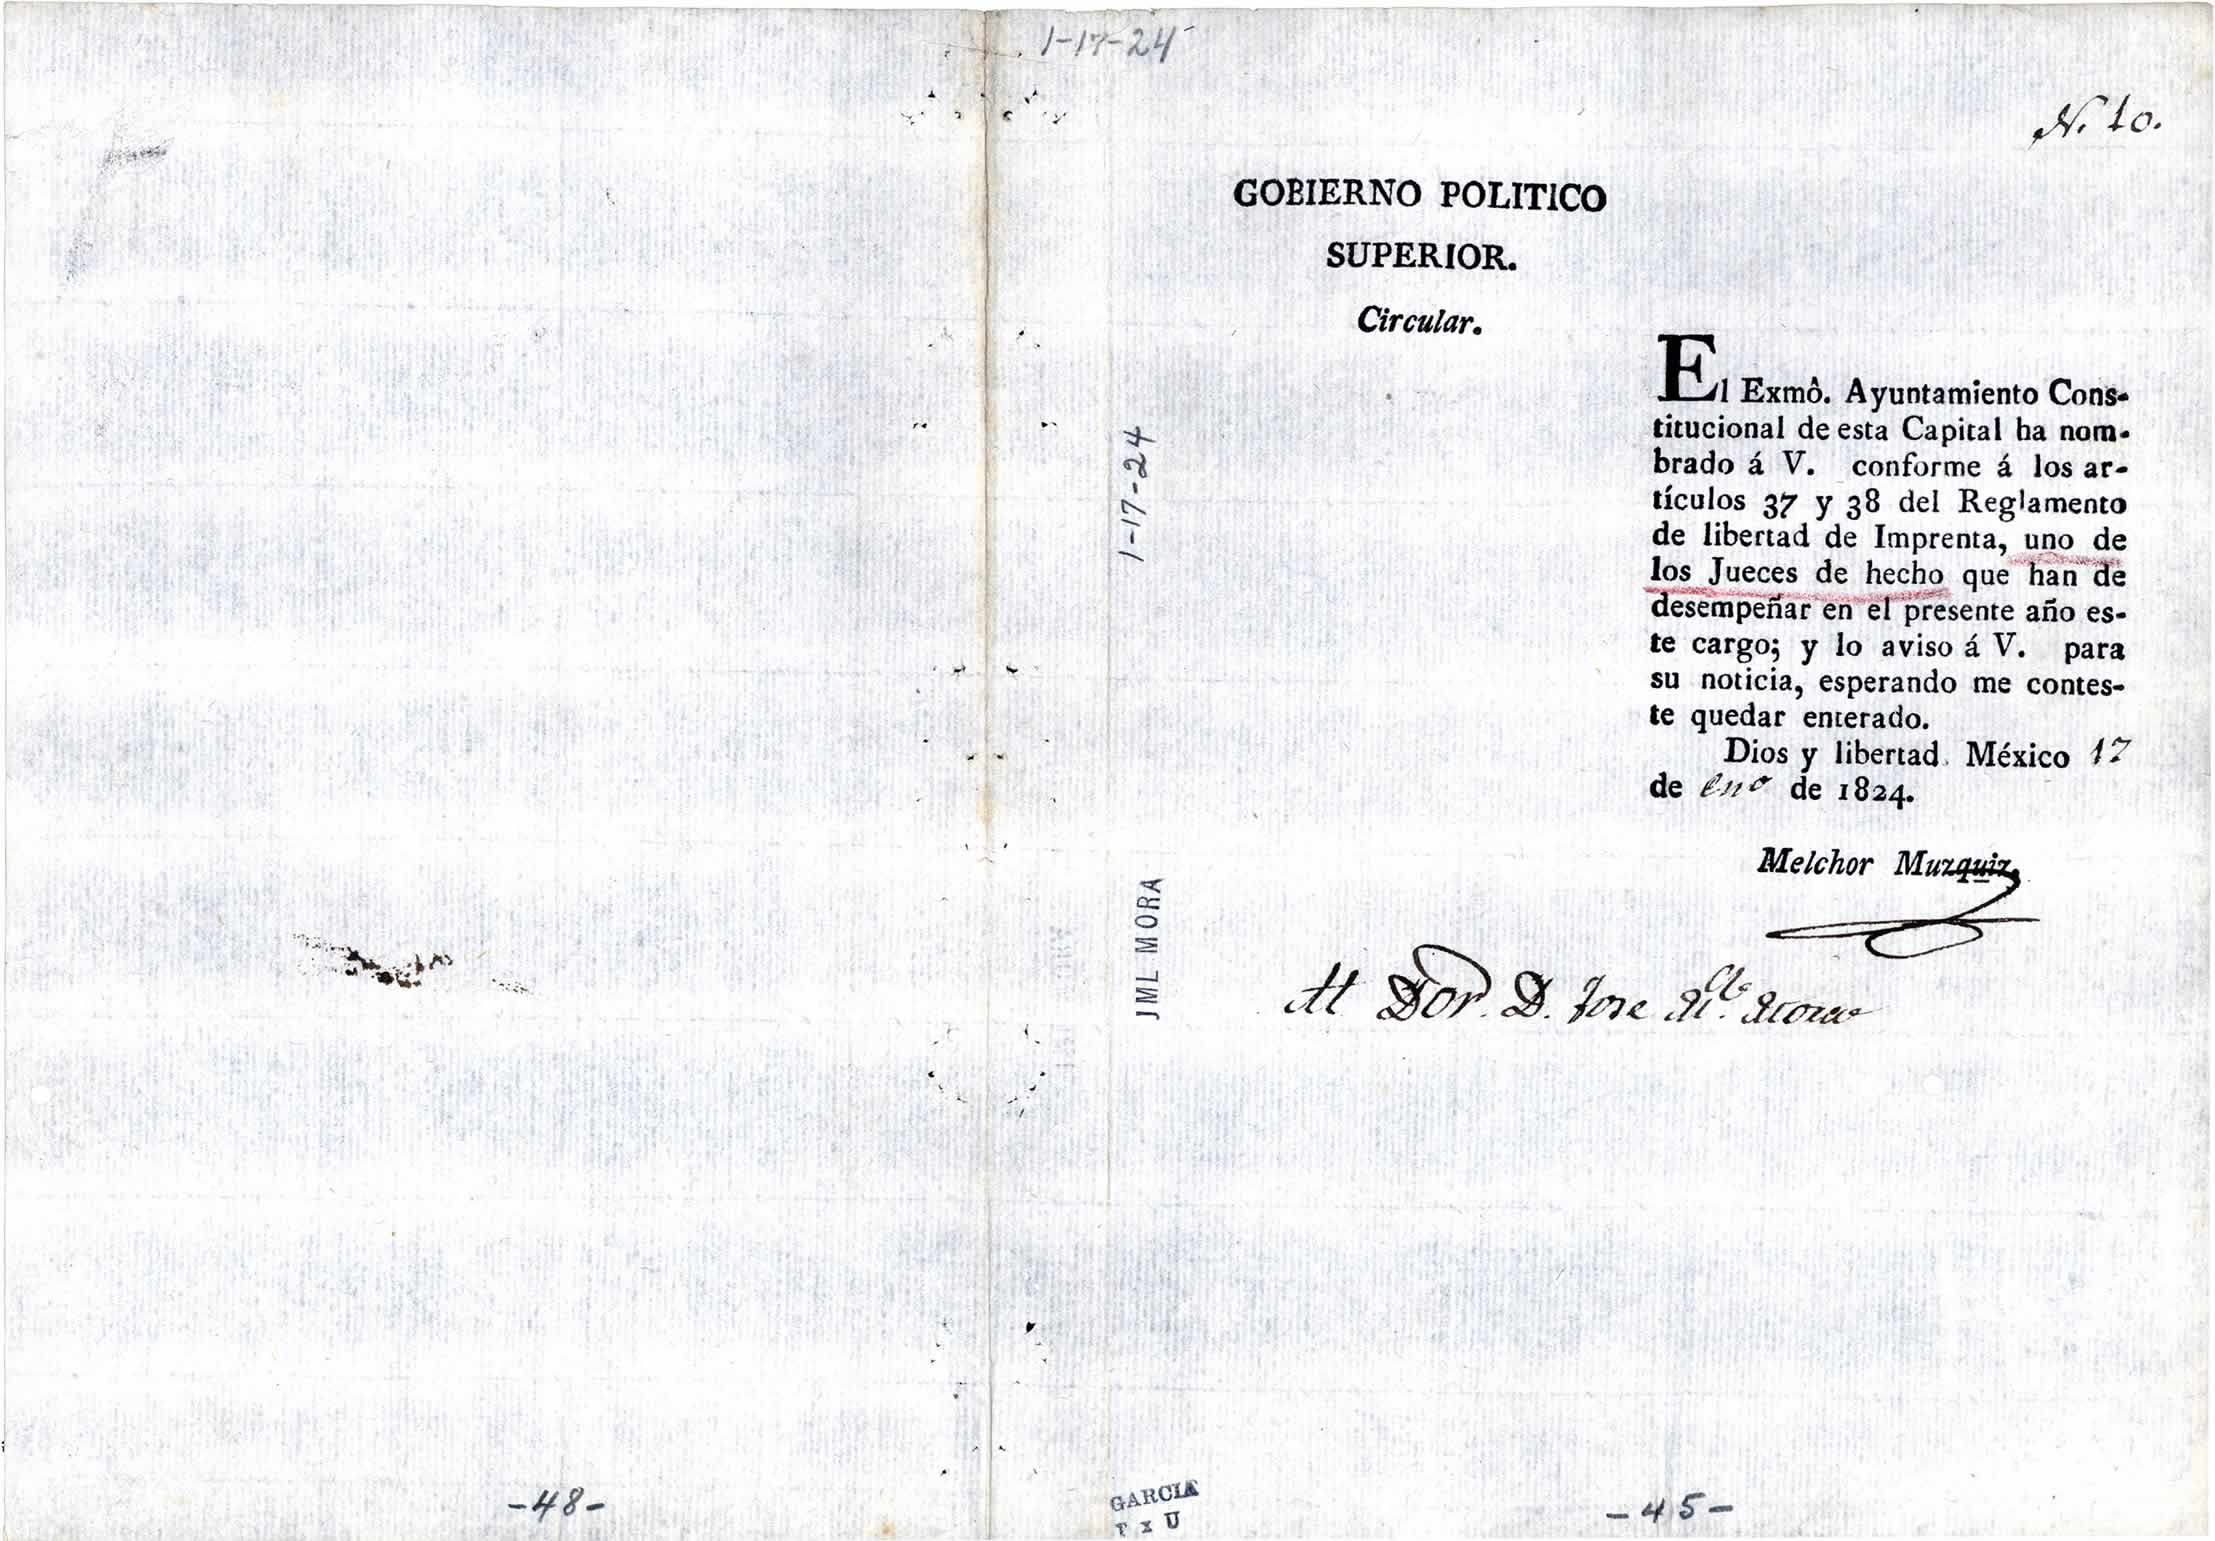 1-17-24
N. 10.
GOBIERNO POLITICO
SUPERIOR.
Circular.
El Exmô. Ayuntamiento Cons-
titucional de esta Capital ha nom-
brado á V. conforme á los ar-
tículos 37 y 38 del Reglamento
de libertad de Imprenta, uno de
los Jueces de hecho que han de
desempeñar en el presente año es-
te cargo; y lo aviso á V. para
su noticia, esperando me contes-
te quedar enterado.
Dios y libertad. México 17
de eno de 1824.
Melchor Muzquiz.
Al Dor. D. Jose M. Mora
1-17-24
JML MORA
-48-
GARCIA
T x U
-45-